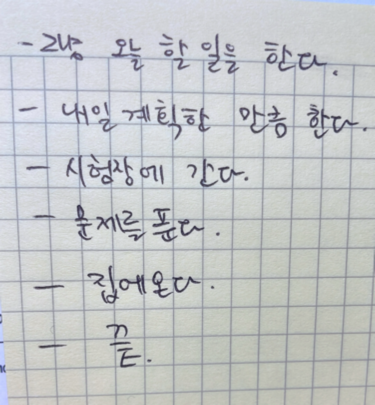 - 그냥 오늘 할 일을 한다.
- 내일 계획한 만큼 한다.
- 시험장에 간다.
- 문제를 푼다.
- 집에온다.
- 끝.